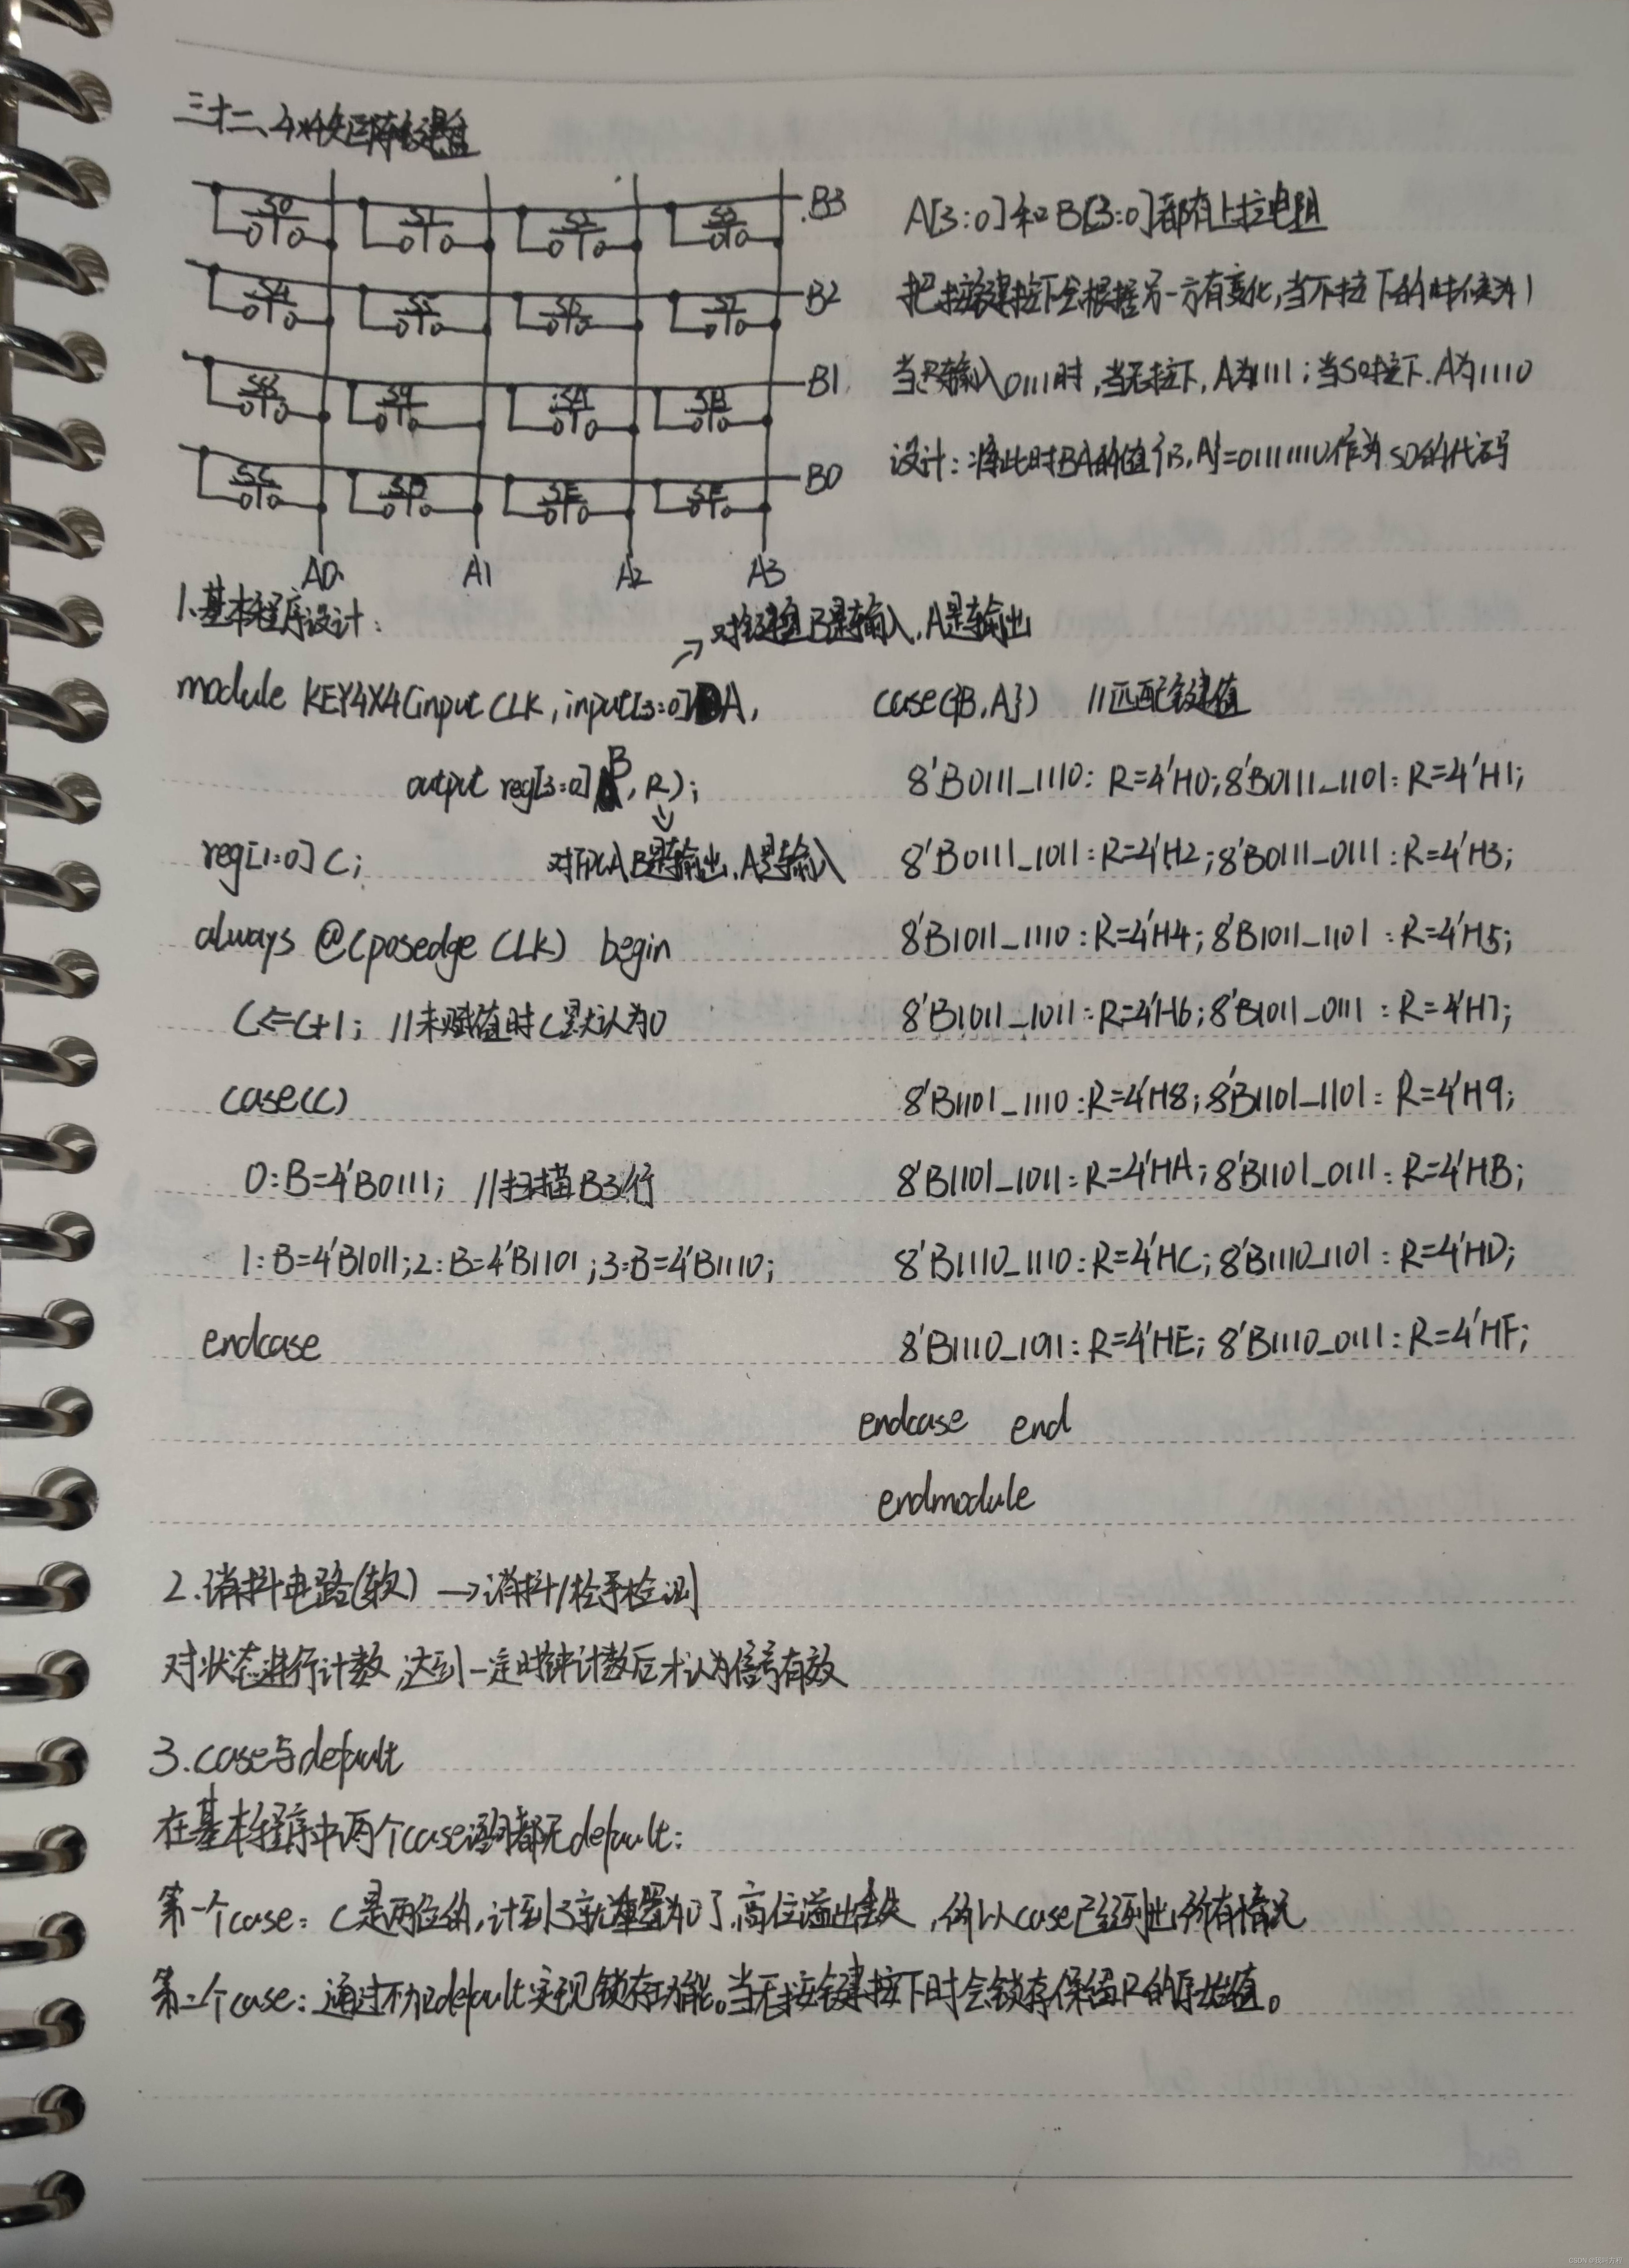 三十二、4x4矩阵键盘
S0 S1 S2 S3 B3
S4 S5 S6 S7 B2
S8 S9 SA SB B1
SC SD SE SF B0
A0 A1 A2 A3
A[3:0]和B[3:0]都有上拉电阻
把按键按下会根据另一方有变化,当不按下的时候为1
当B输入0111时,当无按下,A为1111;当S0按下.A为1110
设计:将此时BA的值{B,A}=01111110作为S0的代码
1.基本程序设计:
→对按键盘B是输入,A是输出
module KEY4X4(input CLK, input[3:0] A,
output reg[3:0] B, R);
reg[1:0] C;
对FPGA B是输出.A是输入
always @(posedge CLK) begin
C<=C+1; //未赋值时C默认为0
case(C)
0:B=4'B0111; //扫描B3行
1:B=4'B1011;2:B=4'B1101;3:B=4'B1110;
endcase
case({B,A}) //匹配键值
8'B0111_1110: R=4'H0;8'B0111_1101: R=4'H1;
8'B0111_1011:R=4'H2;8'B0111_0111:R=4'H3;
8'B1011_1110:R=4'H4;8'B1011_1101:R=4'H5;
8'B1011_1011:R=4'H6;8'B1011_0111:R=4'H7;
8'B1101_1110:R=4'H8;8'B1101_1101:R=4'H9;
8'B1101_1011:R=4'HA;8'B1101_0111:R=4'HB;
8'B1110_1110:R=4'HC;8'B1110_1101:R=4'HD;
8'B1110_1011:R=4'HE;8'B1110_0111:R=4'HF;
endcase end
endmodule
2.消抖电路(软) →消抖/松手检测
对状态进行计数,达到一定时钟计数后才认为信号有效
3.case与default
在基本程序中两个case语句都无default:
第一个case:C是两位的,计到3就重置为0了,高位溢出丢失,所以case已经列出所有情况
第二个case:通过不加default实现锁存功能。当无按键按下时会锁存保留R的原始值。
CSDN